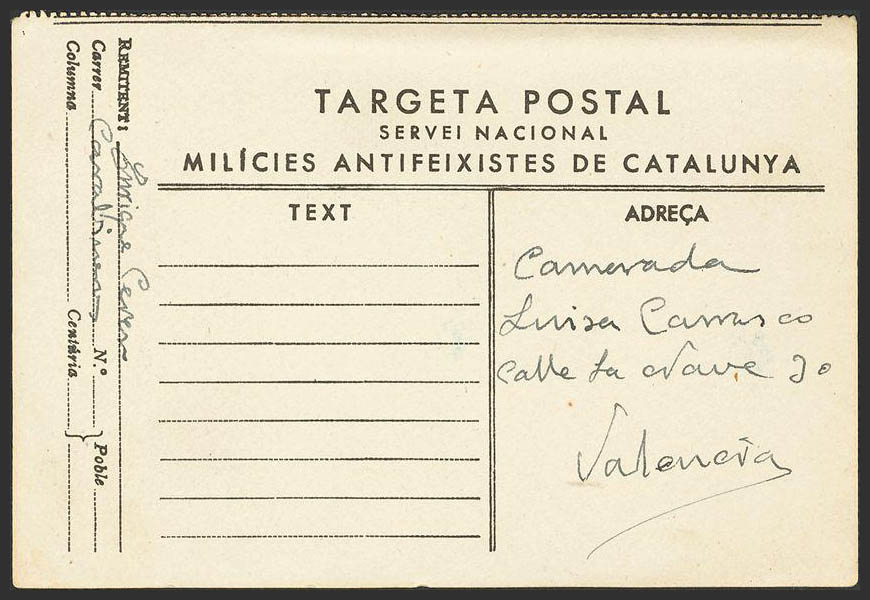 TARGETA POSTAL
SERVEI NACIONAL
MILÍCIES ANTIFEIXISTES DE CATALUNYA
REMITENT: Enrique
Carrer N.º Poble
Columna Centúria
TEXT
ADREÇA
Camarada
Luisa Carrasco
Calle La Nave 30
Valencia